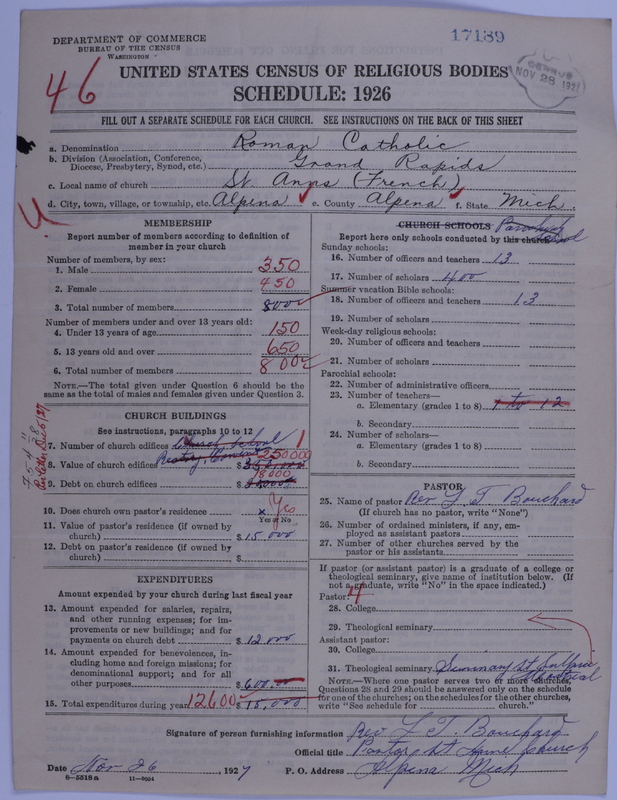 DEPARTMENT OF COMMERCE
BUREAU OF THE CENSUS
WASHINGTON
17189
CENSUS
NOV 28 1927
46
UNITED STATES CENSUS OF RELIGIOUS BODIES
SCHEDULE: 1926
FILL OUT A SEPARATE SCHEDULE FOR EACH CHURCH. SEE INSTRUCTIONS ON THE BACK OF THIS SHEET
a. Denomination Roman Catholic
b. Division (Association, Conference, Diocese, Presbytery, Synod, etc.) Grand Rapids
c. Local name of church St. Anns (French)
d. City, town, village, or township, etc. Alpena e. County Alpena f. State Mich
MEMBERSHIP
Report number of members according to definition of member in your church
Number of members, by sex:
1. Male 350
2. Female 450
3. Total number of members 800
Number of members under and over 13 years old:
4. Under 13 years of age 150
5. 13 years old and over 650
6. Total number of members 800
NOTE.—The total given under Question 6 should be the same as the total of males and females given under Question 3.
CHURCH BUILDINGS
See instructions, paragraphs 10 to 12
7. Number of church edifices Church, School 1
8. Value of church edifices Rectory, Convent $ 250000
9. Debt on church edifices $ 8000
10. Does church own pastor's residence x Yes
Yes or No
11. Value of pastor's residence (if owned by church) $ 15 000
12. Debt on pastor's residence (if owned by church) $
EXPENDITURES
Amount expended by your church during last fiscal year
13. Amount expended for salaries, repairs, and other running expenses; for improvements or new buildings; and for payments on church debt $ 12 000
14. Amount expended for benevolences, including home and foreign missions; for denominational support; and for all other purposes $ 600
15. Total expenditures during year 12600 $ 15,000
CHURCH SCHOOLS Parochial School
Report here only schools conducted by this church
Sunday schools:
16. Number of officers and teachers 13
17. Number of scholars 400
Summer vacation Bible schools:
18. Number of officers and teachers 13
19. Number of scholars
Week-day religious schools:
20. Number of officers and teachers
21. Number of scholars
Parochial schools:
22. Number of administrative officers
23. Number of teachers—
a. Elementary (grades 1 to 8) 1 to 12
b. Secondary
24. Number of scholars—
a. Elementary (grades 1 to 8)
b. Secondary
PASTOR
25. Name of pastor Rev L T Bouchard
(If church has no pastor, write "None")
26. Number of ordained ministers, if any, employed as assistant pastors
27. Number of other churches served by the pastor or his assistants
If pastor (or assistant pastor) is a graduate of a college or theological seminary, give name of institution below. (If not a graduate, write "No" in the space indicated.)
Pastor: 4
28. College
29. Theological seminary
Assistant pastor:
30. College
31. Theological seminary Seminary St Sulpice Montreal
NOTE.—Where one pastor serves two or more churches, Questions 28 and 29 should be answered only on the schedule for one of the churches; on the schedules for the other churches, write "See schedule for church."
Signature of person furnishing information Rev L T. Bouchard
Official title Pastor St Anne Church
Date Nov 26, 1927 P. O. Address Alpena Mich
8-5318a 11-9064